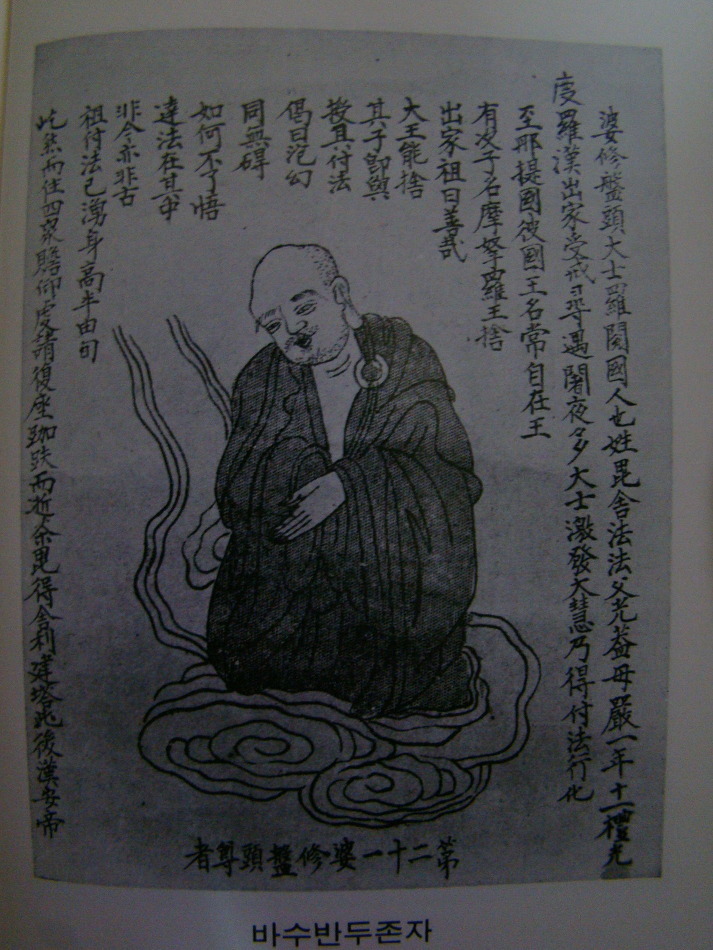 婆修盤頭大士羅閱國人也姓毘舍法法父光蓋母嚴一年十一禮光
度羅漢出家受戒尋遇闍夜多大士激發大慧乃得付法行化
至耶提國彼國王名常自在王
有次子名摩拏羅王捨
出家祖曰善哉
大王能捨
其子卽與
授具付法
偈曰泡幻
同無碍
如何不了悟
達法在其中
非今亦非古
祖付法已湧身高半由旬
屹然而住四衆瞻仰虔請復座跏趺而逝茶毘得舍利建塔此後漢安帝
第二十一婆修盤頭尊者
바수반두존자